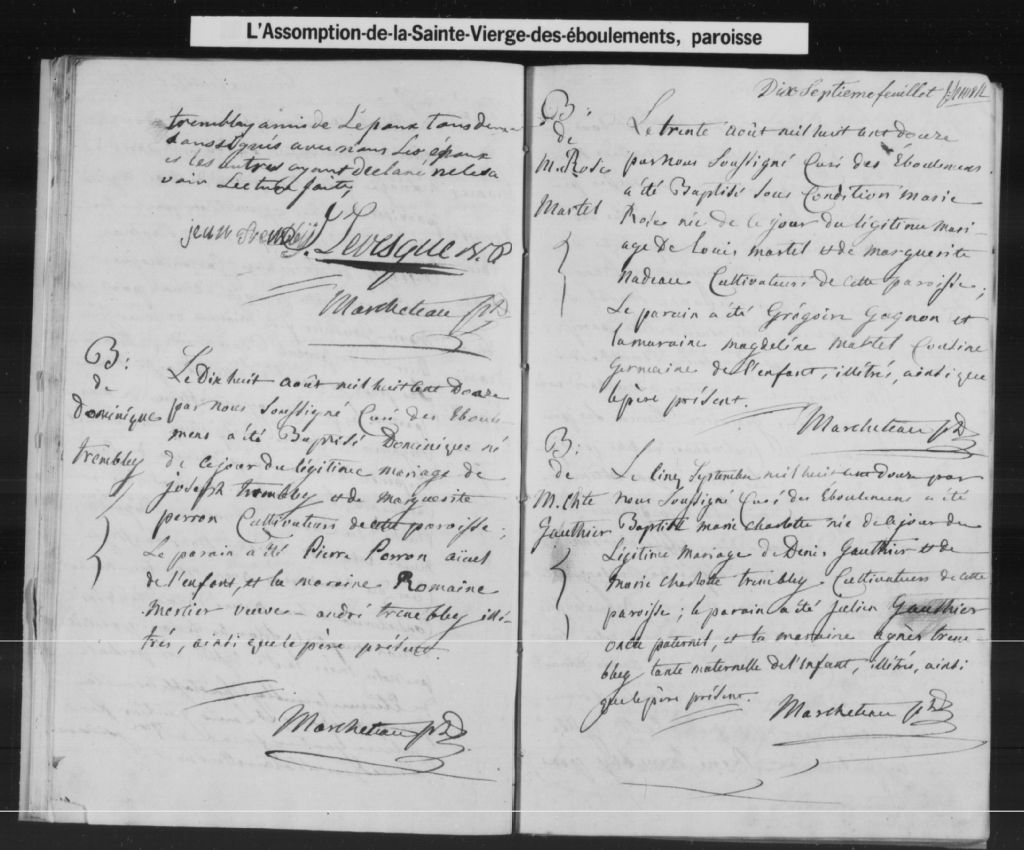 L'Assomption-de-la-Sainte-Vierge-des-éboulements, paroisse
trembley amis de L'epoux tous
soussignés avec nous Les epoux
et les autres ayant declaré ne le sa
voir Lecture faite
jean
Levesque N.P.
Marcheteau ptre
B:
de
Dominique
trembley
Le Dix huit août mil huit cent Douze
par nous Soussigné Curé des Eboule-
mens a été Baptisé Dominique né
de ce jour du légitime mariage de
joseph trembley et de marguerite
perron Cultivateurs de cette paroisse;
Le parain a été Pierre Perron aïeul
de l'enfant, et la maraine Romaine
Mercier veuve andré trembley illé-
trés, ainsi que le père présent.
Marcheteau ptre
Dix Septieme feuillet
B:
de
M. Rose
Martel
Le trente août mil huit cent douze
par nous Soussigné Curé des Éboulemens
a été Baptisé Sous Condition marie
Rose née de ce jour du légitime mari-
age de Louis martel et de marguerite
nadeau Cultivateurs de cette paroisse;
Le parain a été Grégoire Gagnon et
la maraine magdeléne martel Cousine
Germaine de l'enfant, illétrés, ainsi que
le père présent.
Marcheteau ptre
B:
de
M. Chte
Gauthier
Le cinq Septembre mil huit cent douze par
nous Soussigné Curé des Éboulemens a été
Baptisé marie charlotte née de ce jour du
Légitime mariage de Denis Gauthier et de
marie charlotte trembley Cultivateurs de cette
paroisse; le parain a été julien Gauthier
oncle paternel, et la maraine agnès trem-
bley tante maternelle de l'enfant, illétrés, ainsi
que le père présent.
Marcheteau ptre